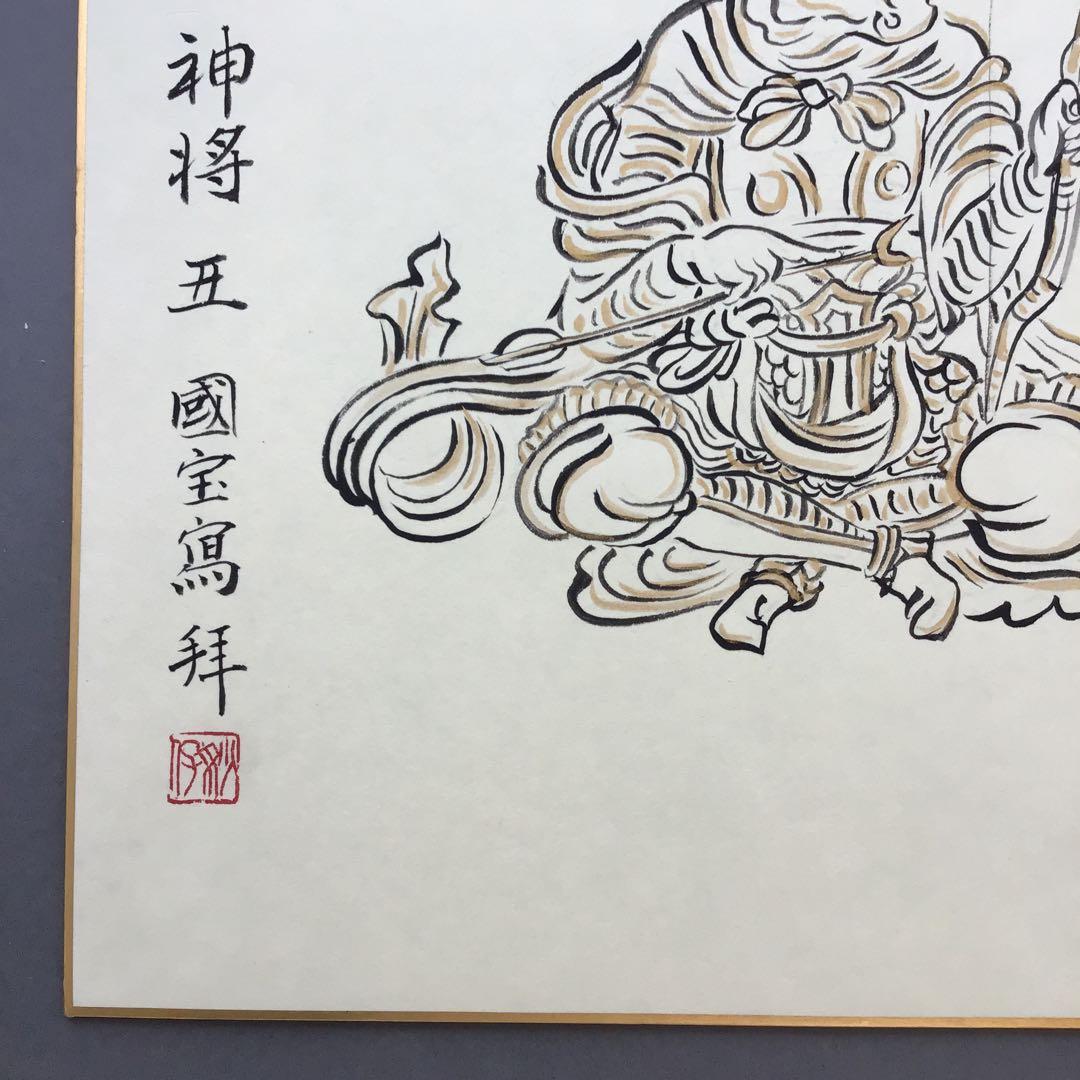 神将 丑 國宝寫 拜